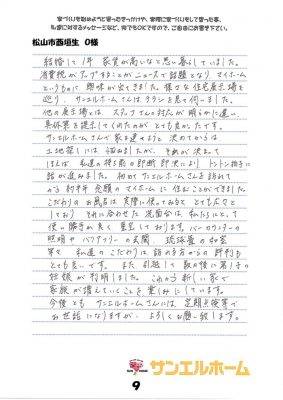 家づくりを始めようと思ったきっかけや、実際に家づくりをして思った事、
私達に対するメッセージなど、何でもOKですので、ご自由にお書き下さい。
松山市西垣生 O様
結婚して1年 家賃が高いなと思い暮らしていました。
消費税がアップすることがニュースで話題となり マイホーム
というものに 興味が出てきました。様々な住宅展示場を
巡り、サンエルホームさんはチラシを見て伺いました。
他の展示場とは スタッフさんの対応が明らかに違い、
具体案を提示してくれたのが とても良かったです。
サンエルホームさんで家を建てようと 決めてからは
土地探しには 悩みましたが、それが決まって
いれば 私達の持ち前の診断 即決により トントン拍子に
話が進みました。初めて サンエルホームさんを訪れて
から 約半年 念願の マイホームに 住むことができました。
こだわりの お風呂は 実際に使ってみると とても広々と
しており それに合わせた 洗面台は 私たちにとって
使い勝手が良く 重宝しております。バーカウンターの
照明や バリアフリーの玄関 琉球畳の和室
等々 私達の こだわりは 訪れる方からの 評判も
とても良いです。また、引越して 数ヶ月後に 第1子の
妊娠が 判明しました。これから 新しい家で
家族が増えていくことを 楽しみにしています。
今後とも サンエルホームさんには 定期点検等で
お世話になりますが、よろしくお願い致します。
サンエルホーム
9